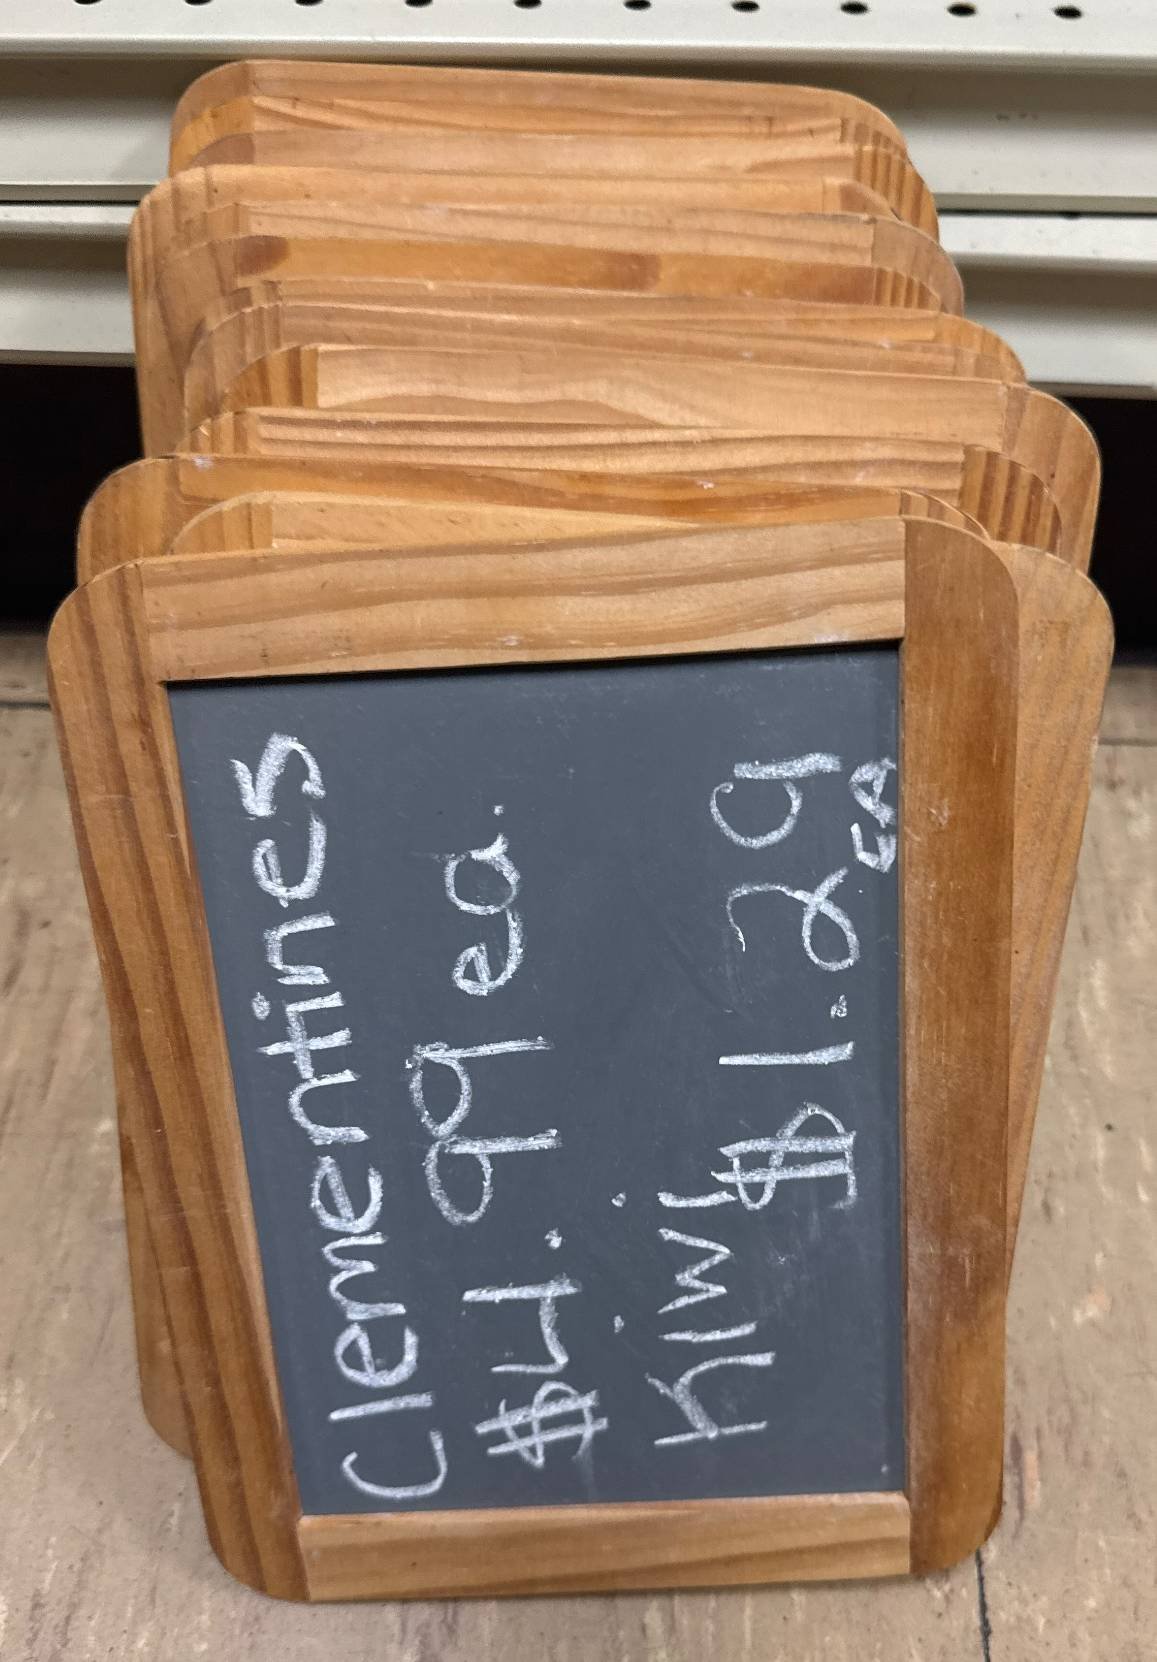 Clementines
$4.99 ea.
Kiwi $1.29
EA